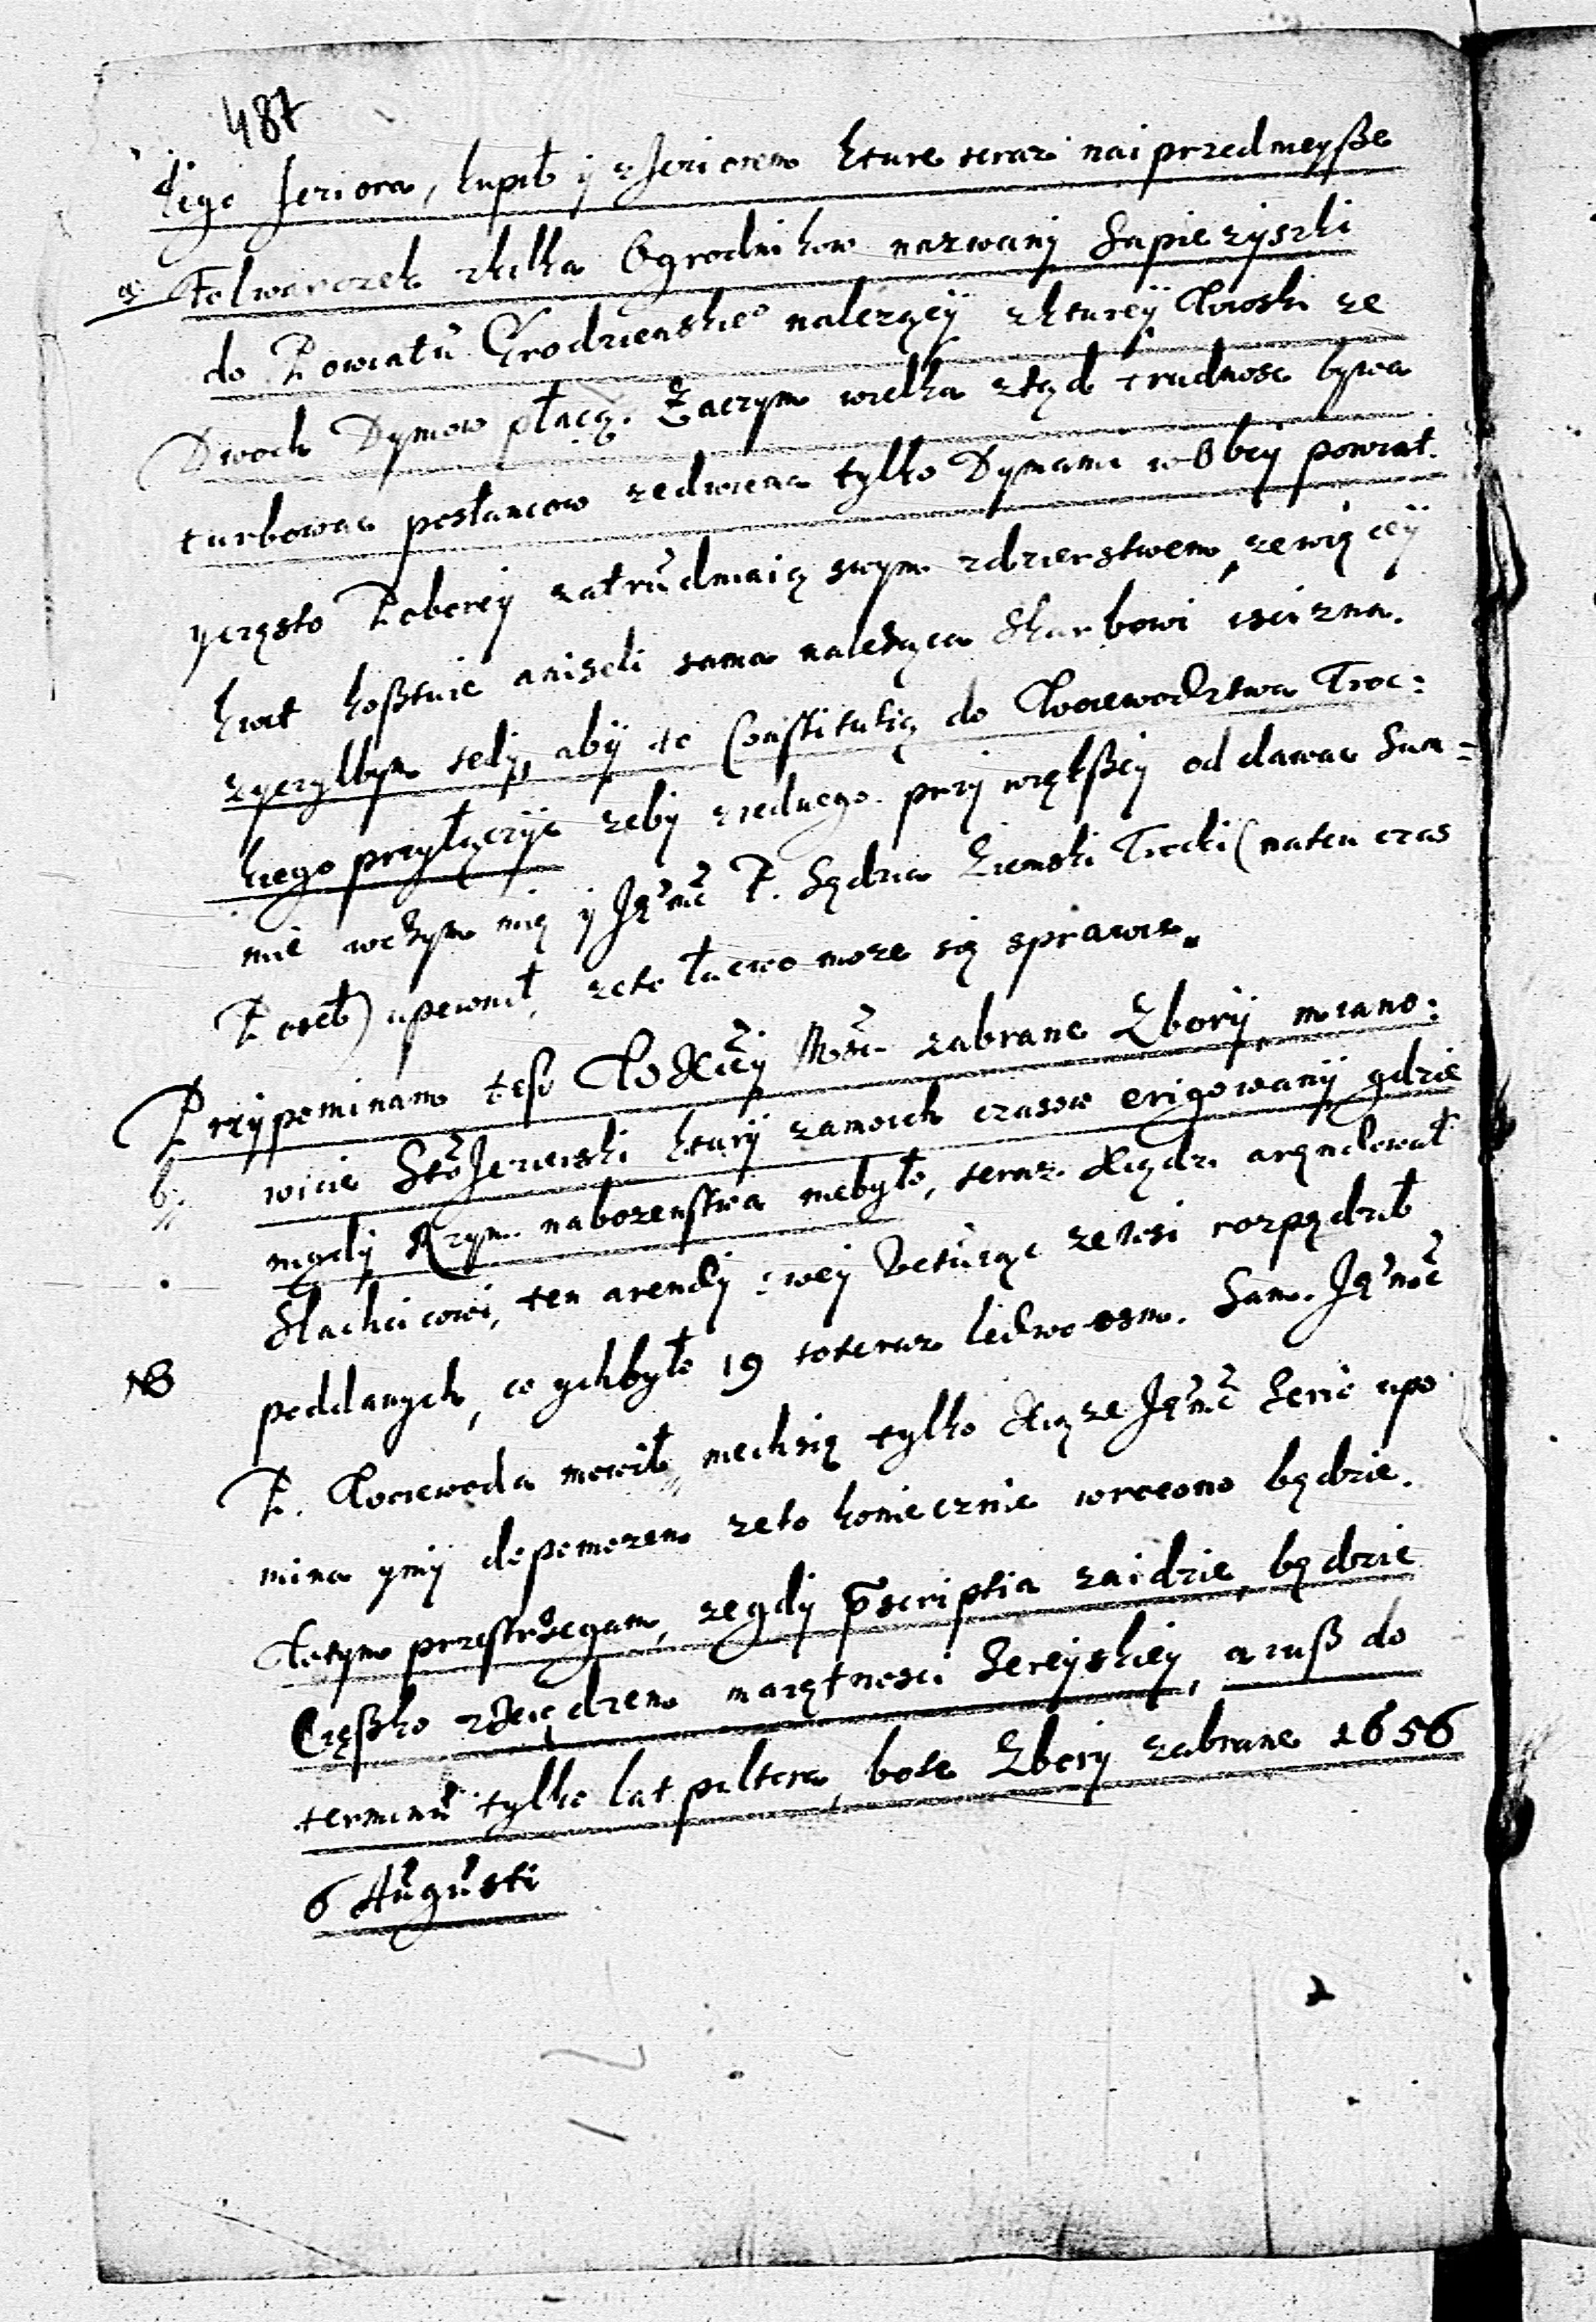 487
kiego Jeriora, kupił y zJeriorem kture teraz naiprzedmeyße
a Folwarczek zkilka Ogrodnikow nazwany Sapiezyszki
do Powiatu Grodzienskie° nalezący zkturey Wioski ze
Dwoch Dymow płacą. Zaczym wielka ztąd trudnosc bywa
turbowac posłancow zedwiema tylko Dymami w Obcy powiat.
yczęsto Poborcy zatrudniaią swym zdzierstwem, zewięcey
kwit koßtuie anizeli sama należąca Skarbowi iscizna.
zyczyłbym tedy, aby to Constitutią do Woiewodztwa Troc:
kiego przyłączyc zeby ziednego przy więkßey oddawac Sum=
mie wczym mię y Jęmć P. Sędzia Ziemski Trocki (naten czas
Poseł) upewnił, zeto łacwo moze się sprawic.
Przypominam tesz WXiey Mści zabrane Zbory, miano:
b. wicie StoJezierski ktury zamoich czasow erigowany gdzie
nigdy Rzym. nabozenstwa niebyło, teraz Xiądz arędował
Slachcicowi, ten arendy swey zewsi rozpędził
NB poddanych, co ychbyło 19 toteraz ledwo osm. Sam Jęmć
P. Woiewoda mowił, niechsię tylko Xiąze Jęmć Serio upo
mina ymy dopomozem zeto koniecznie wrocono będzie.
Wtym przestrzegam, zegdy pscriptia zaidzie, będzie
Cięßko zXiędzem maiętnosci Sereyskiey, a iuß do
terminu tylko lat pultora, bote Zbory zabrane 1656
6 Augusti